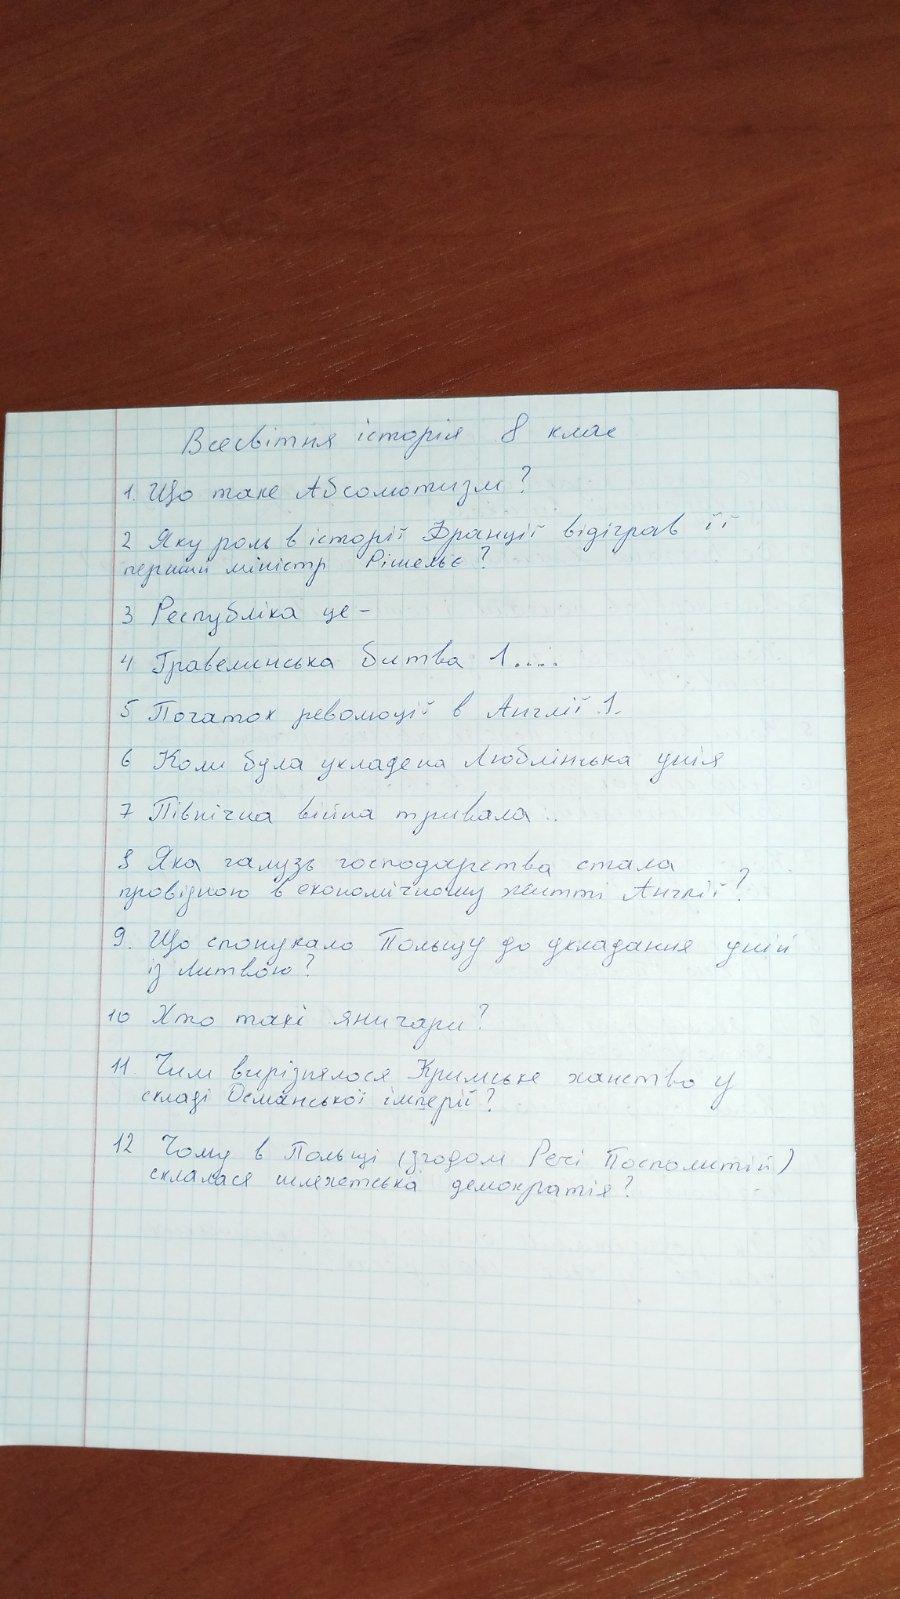 Всесвітня історія 8 клас
1. Що таке Абсолютизм?
2 Яку роль в історії Франції відіграв її
перший міністр Рішельє?
3 Республіка це -
4 Гравелінська битва 1.....
5 Початок революції в Англії 1.
6 Коли була укладена Люблінська унія
7 Північна війна тривала..
8 Яка галузь господарства стала
провідною в економічному житті Англії?
9. Що спонукало Польщу до укладання уній
із Литвою?
10 Хто такі яничари?
11 Чим вирізнялося Кримське ханство у
складі Османської імперії?
12 Чому в Польщі (згодом Речі Посполитій)
склалася шляхетська демократія?